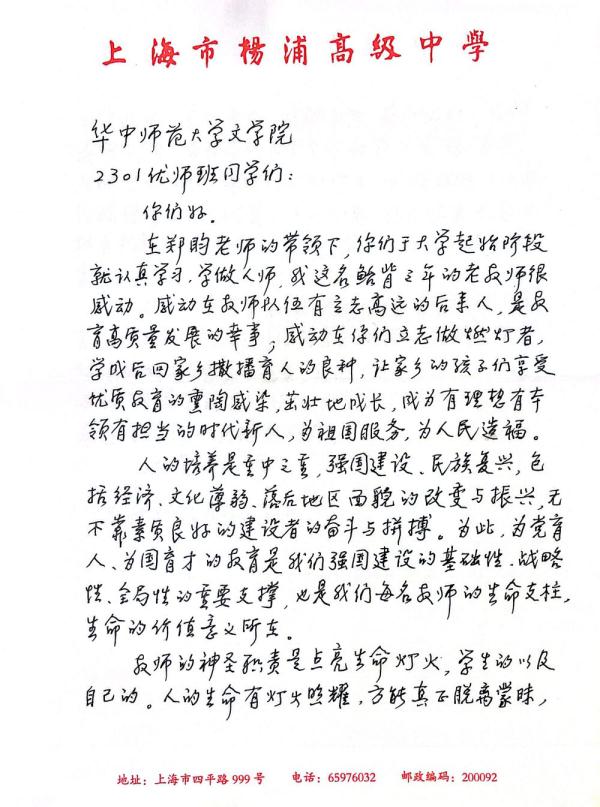 上海市杨浦高级中學
华中师范大学文学院
2301优师班同学们：
你们好。
在郑昀老师的带领下，你们于大学起始阶段
就认真学习，学做人师，我这名鲐背之年的老教师很
感动。感动在教师队伍有立志高远的后来人，是教
育高质量发展的幸事；感动在你们立志做燃灯者，
学成后回家乡撒播育人的良种，让家乡的孩子们享受
优质教育的熏陶感染，茁壮地成长，成为有理想有本
领有担当的时代新人，为祖国服务，为人民造福。
人的培养是重中之重，强国建设、民族复兴，包
括经济、文化薄弱、落后地区面貌的改变与振兴，无
不靠素质良好的建设者的奋斗与拼搏。为此，为党育
人、为国育才的教育是我们强国建设的基础性、战略
性、全局性的重要支撑，也是我们每名教师的生命支柱，
生命的价值意义所在。
教师的神圣职责是点亮生命灯火，学生的以及
自己的。人的生命有灯火照耀，方能真正脱离蒙昧，
地址：上海市四平路999号 电话：65976032 邮政编码：200092